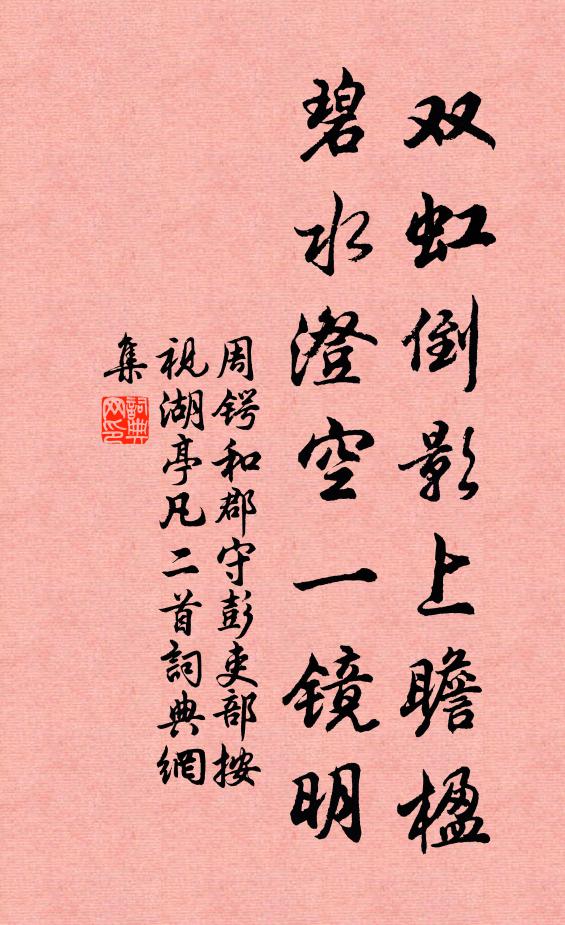 双虹倒影上瞻楹
碧水澄空一镜明
周锷和郡守彭吏部按
视湖亭凡二首詞典網
集
詞典
网印